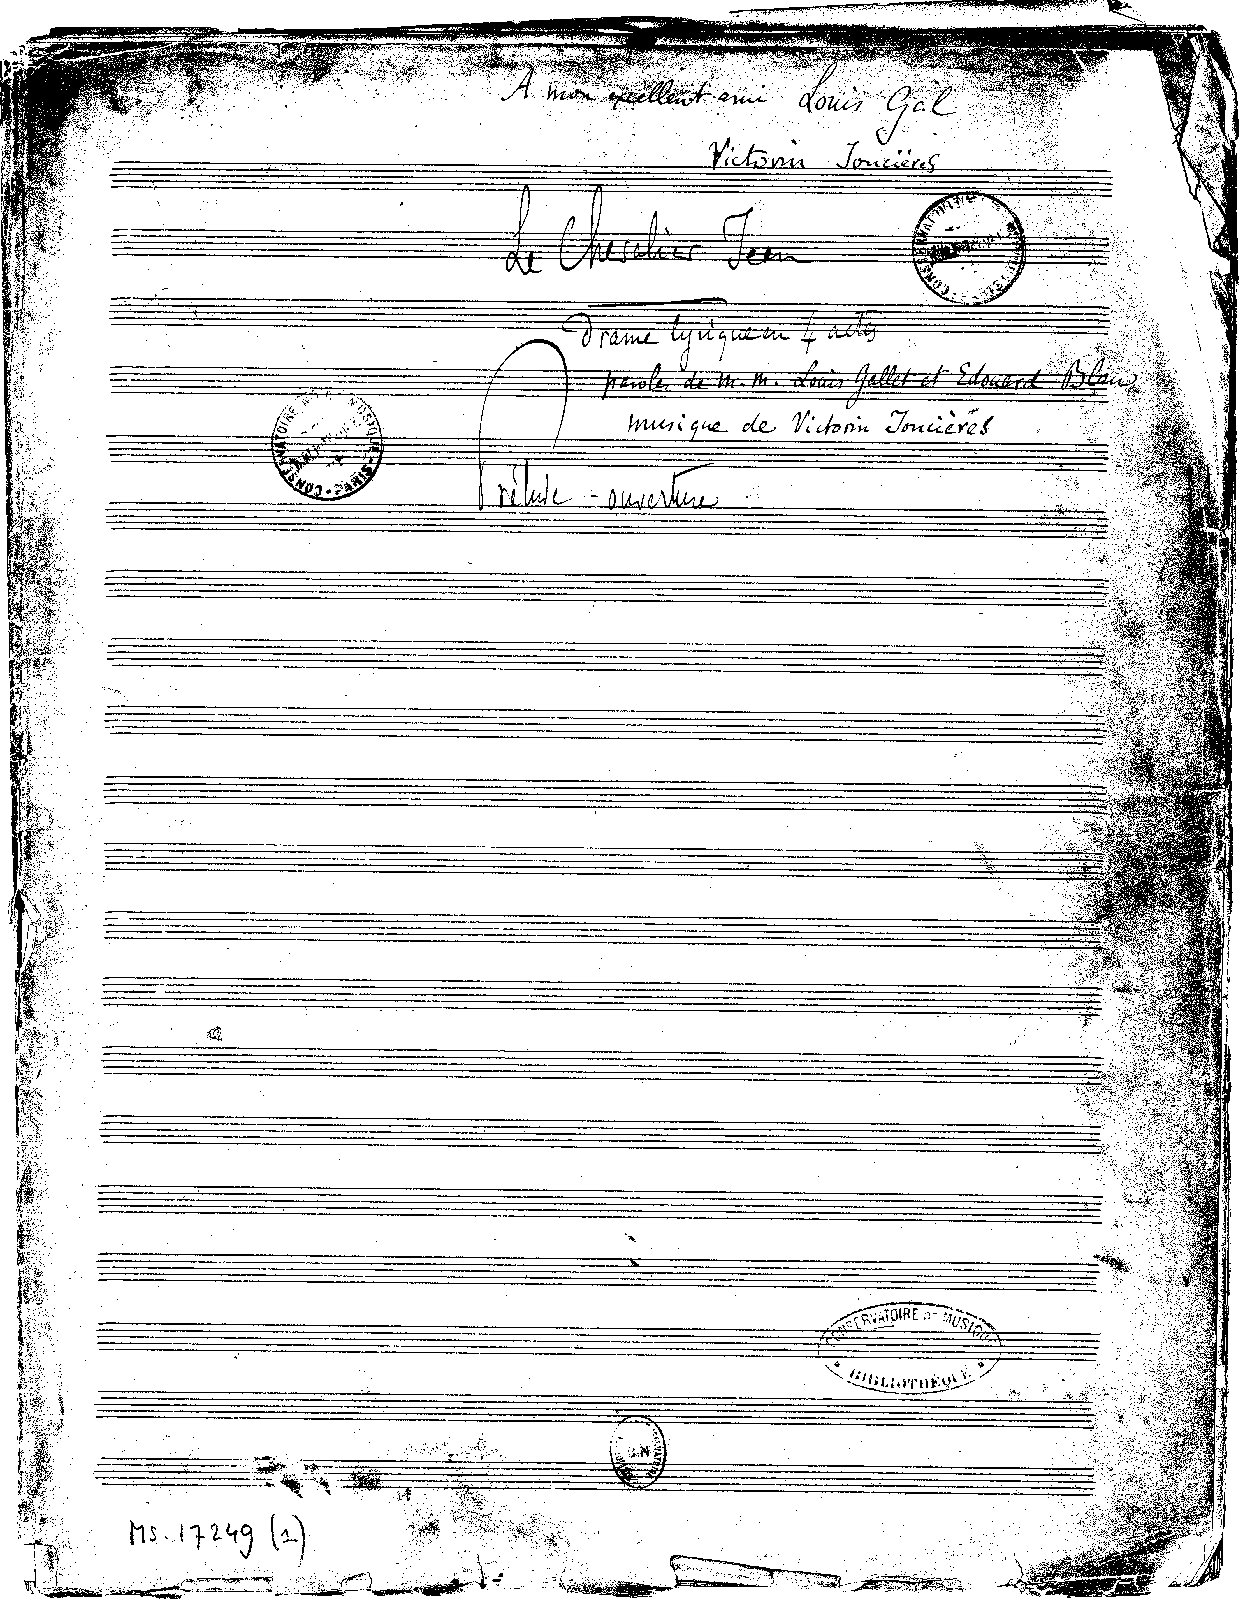 A mon excellent ami Louis Gal
Victorin Joncières
Le Chevalier Jean
Drame lyrique en 4 actes
paroles de M.M. Louis Gallet et Edouard Blau
musique de Victorin Joncières
Prélude - ouverture
CONSERVATOIRE DE MUSIQUE
BIBLIOTHÈQUE
MS. 17249 (1)